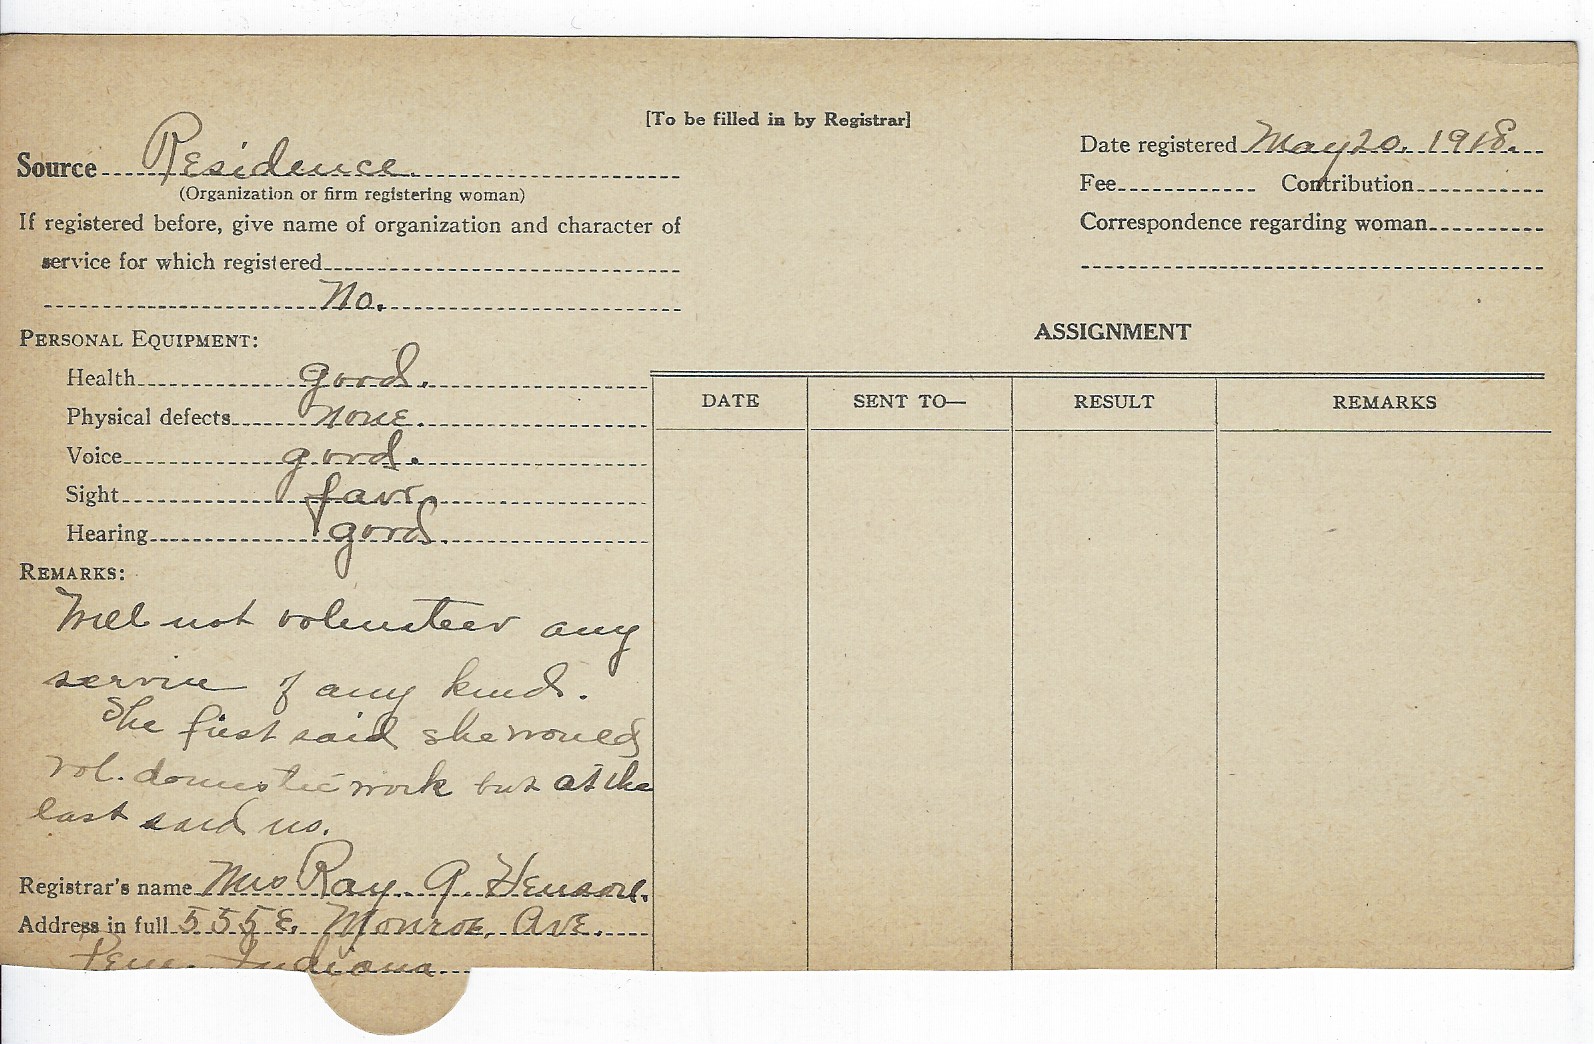 [To be filled in by Registrar]
Source Residence.
(Organization or firm registering woman)
If registered before, give name of organization and character of
service for which registered
No.
Date registered May 20. 1918.
Fee Contribution
Correspondence regarding woman
PERSONAL EQUIPMENT:
Health good.
Physical defects none.
Voice good.
Sight fair,
Hearing good.
REMARKS:
Will not volunteer any
service of any kind.
She first said she would
vol. domestic work but at the
last said no.
Registrar's name Mrs Ray. A Henson.
Address in full 555 E. Monroe, Ave.
Peru. Indiana
ASSIGNMENT
DATE SENT TO— RESULT REMARKS